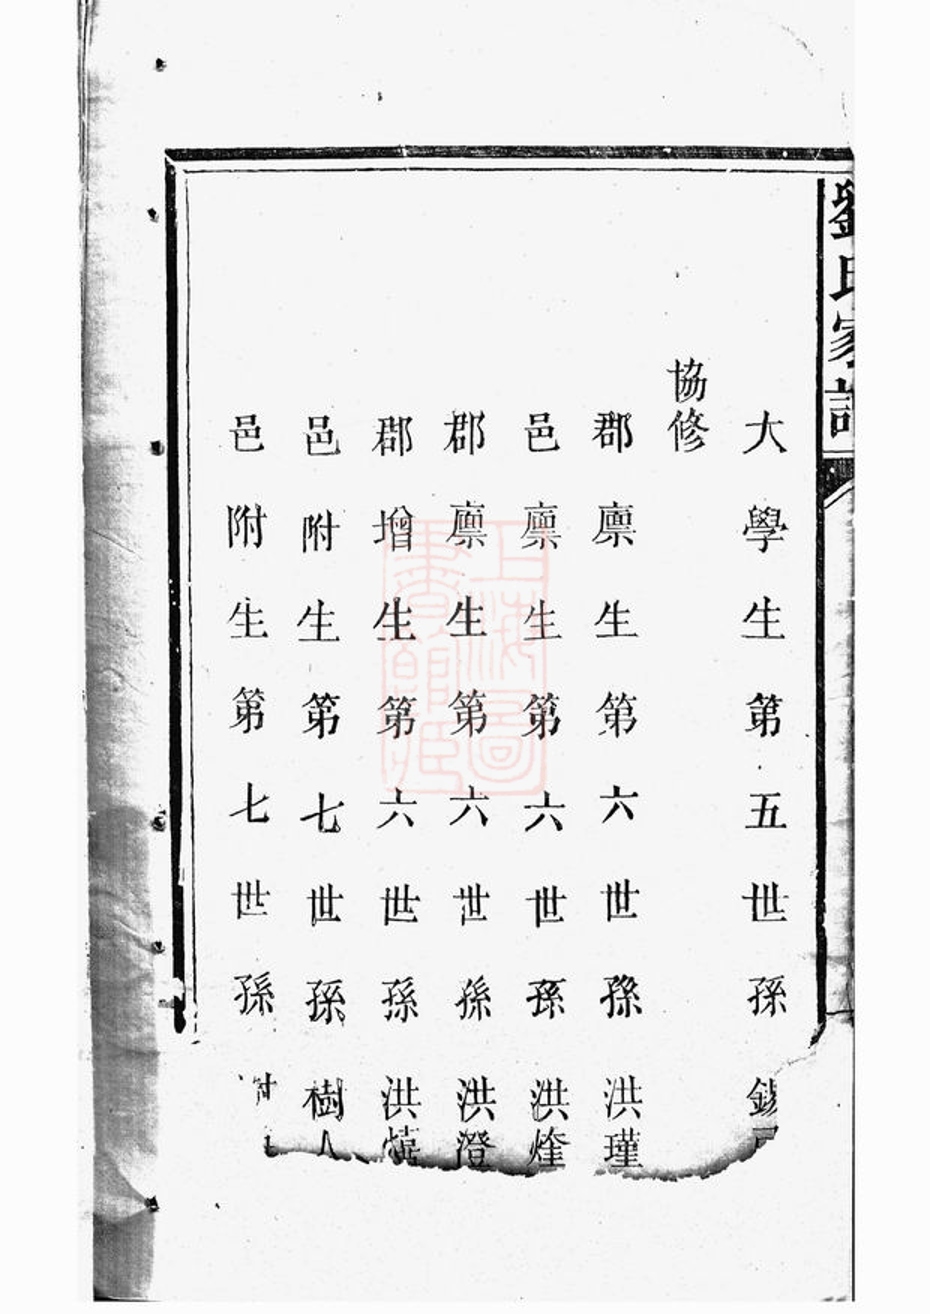 劉氏家譜
大學生第五世孫錫
協修
郡廪生第六世孫洪瑾
邑廪生第六世孫洪煃
郡廪生第六世孫洪澄
郡增生第六世孫洪
邑附生第七世孫樹
邑附生第七世孫
上海圖書館藏